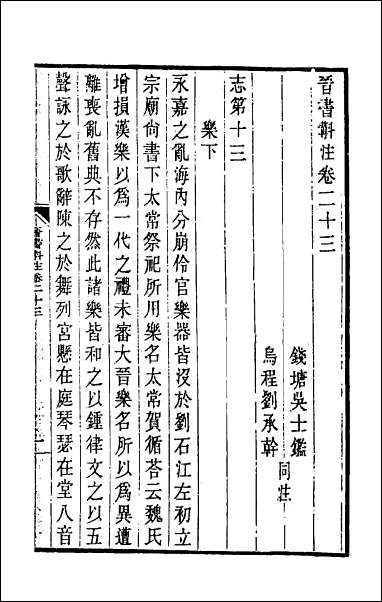 晉書斠注卷二十三
錢塘吳士鑑
烏程劉承幹
同注
志第十三
樂下
永嘉之亂海內分崩伶官樂器皆沒於劉石江左初立
宗廟尙書下太常祭祀所用樂名太常賀循荅云魏氏
增損漢樂以爲一代之禮未審大晉樂名所以爲異遭
離喪亂舊典不存然此諸樂皆和之以鍾律文之以五
聲詠之於歌辭陳之於舞列宮懸在庭琴瑟在堂八音
晉書斠注卷二十三